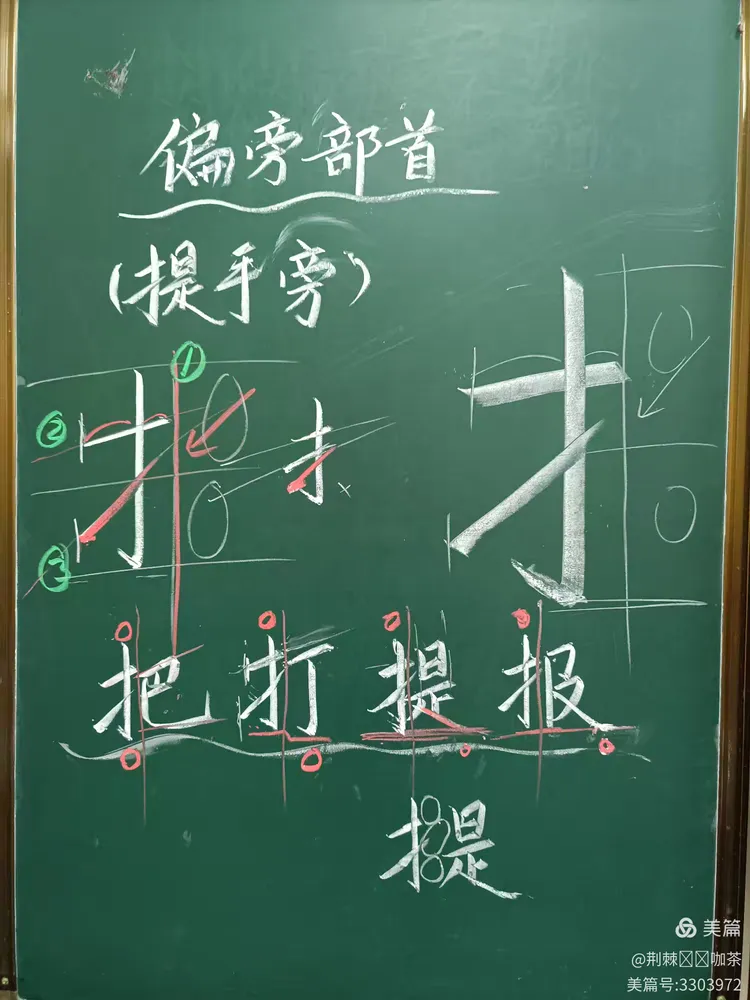 偏旁部首
(提手旁)
①
②
③
扌
扌
扌
把打提报
提
美篇
@荆棘咖茶
美篇号:3303972